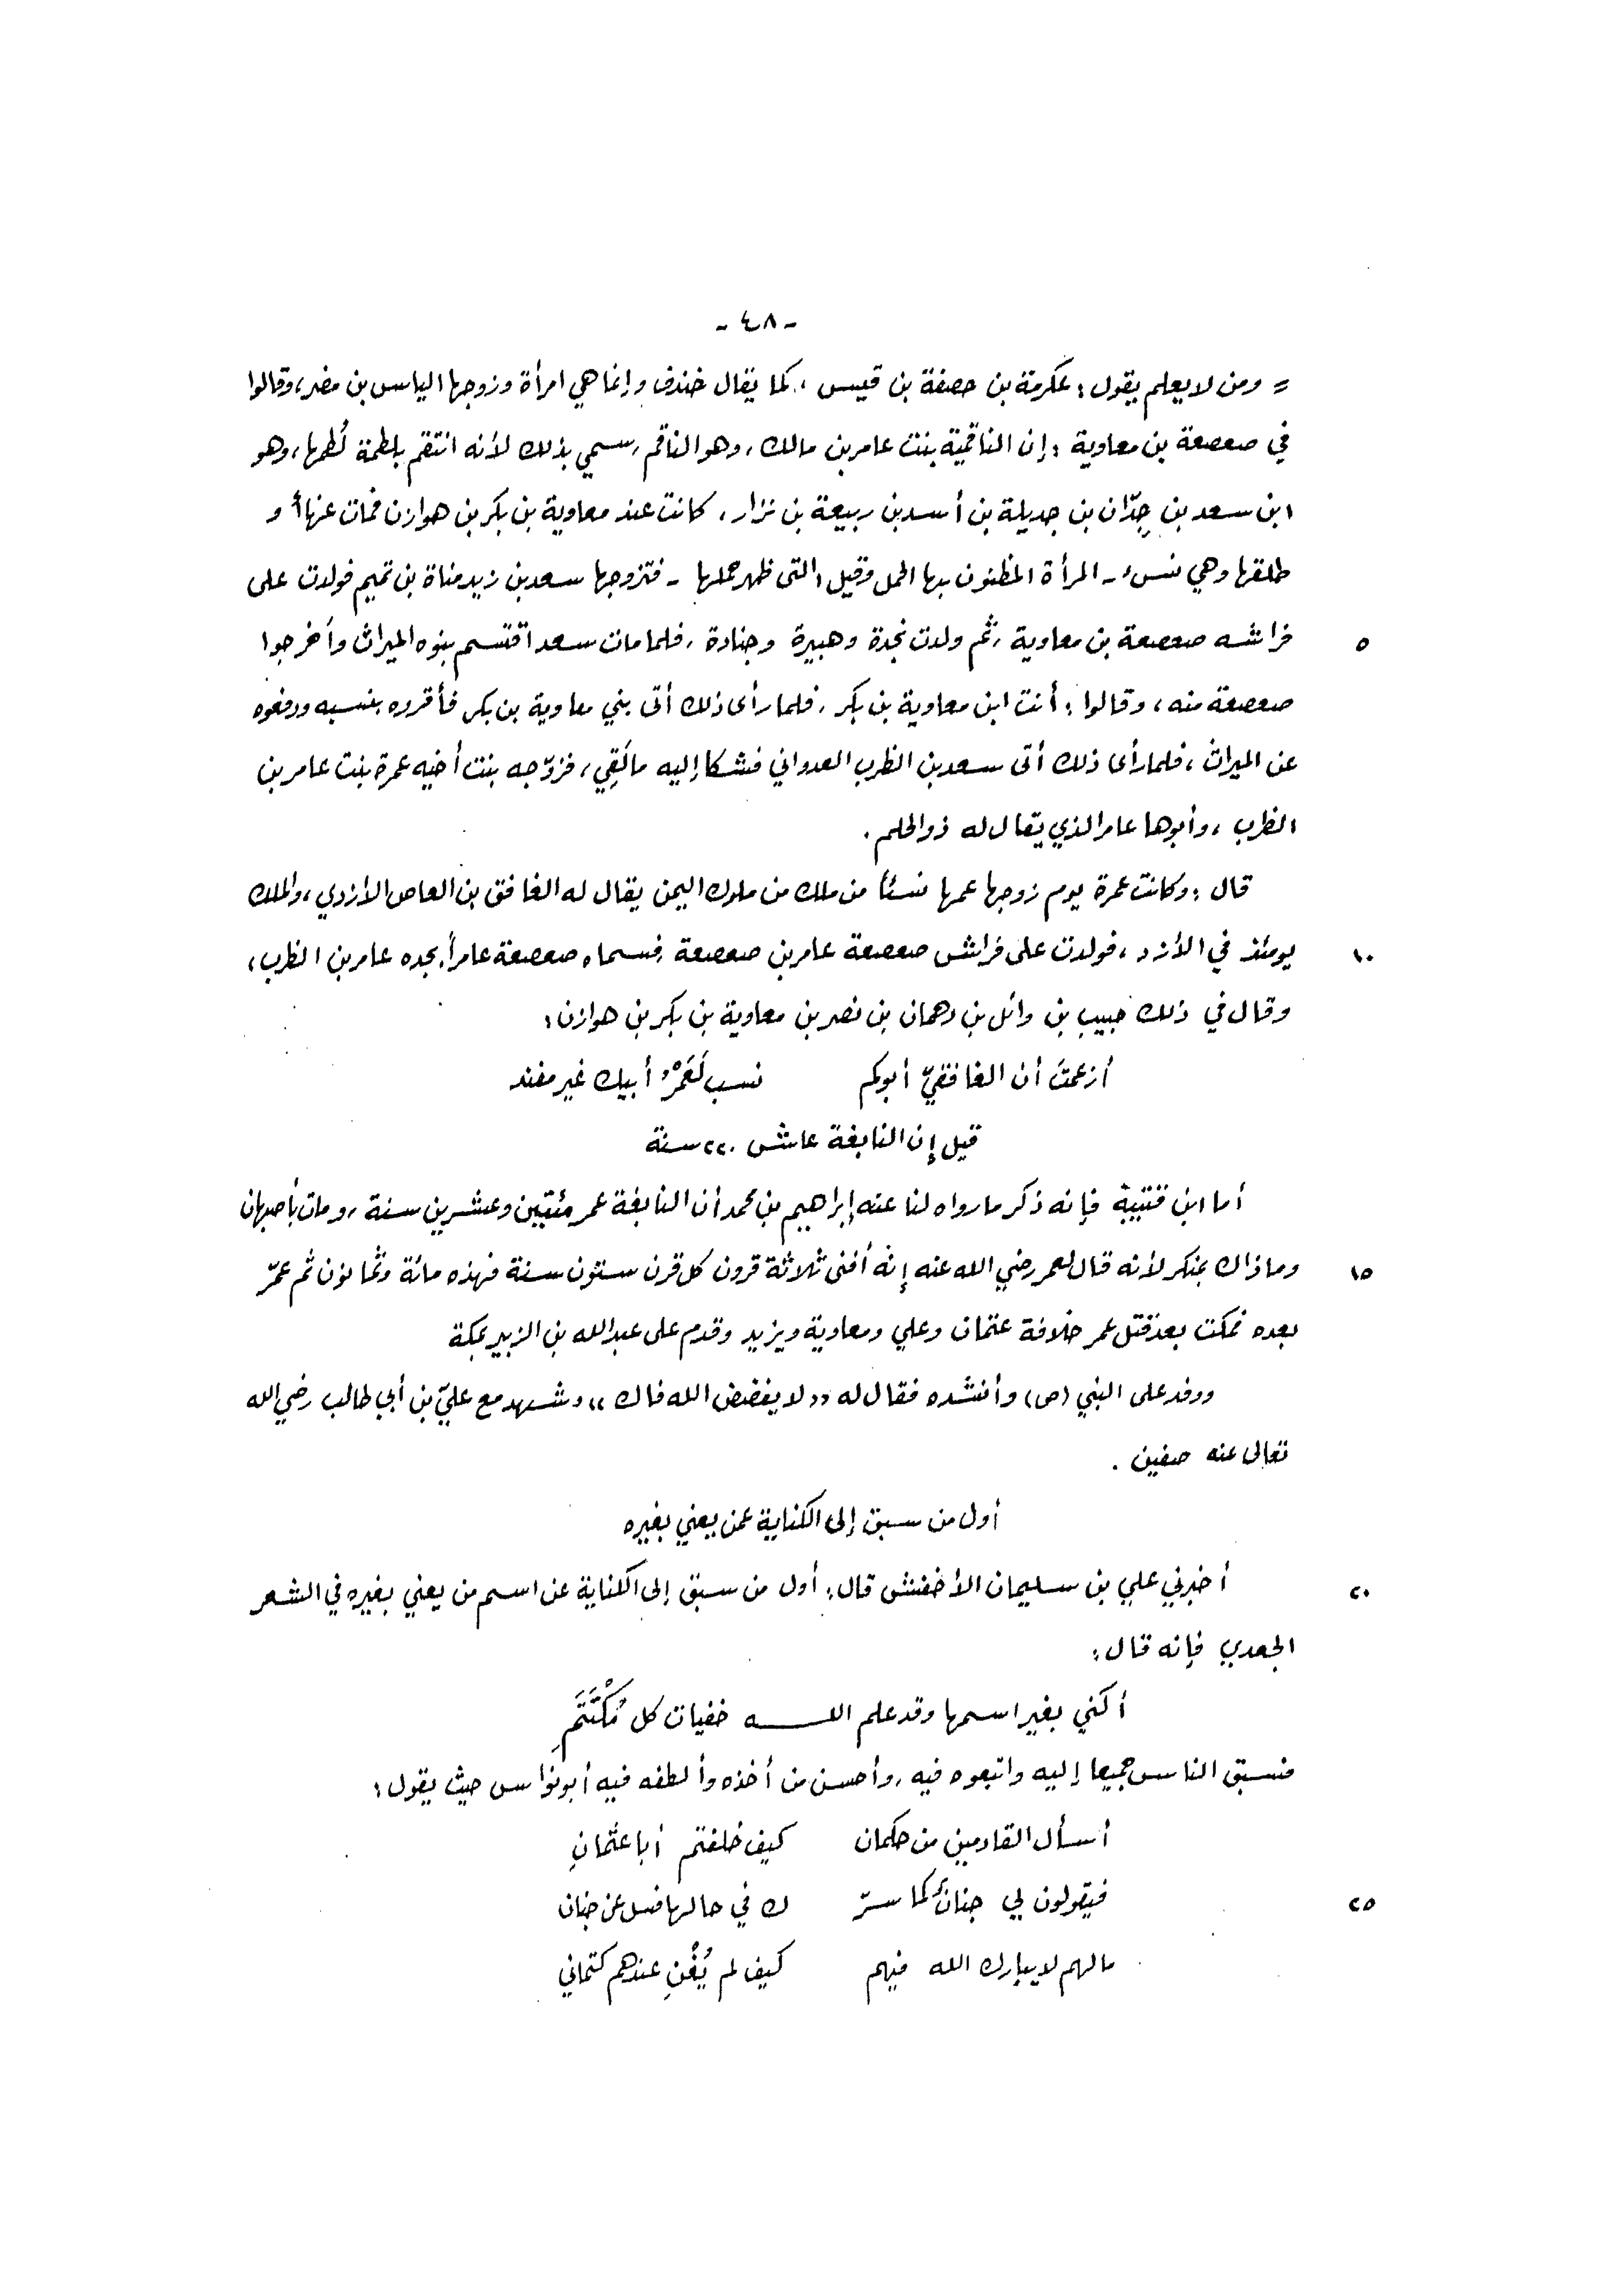 - ٤٨ -
= ومن لا يعلم يقول: عكرمة بن حصفة بن قيس، كما يقال خندف وإنما هي امرأة وزوجها الياس بن مضر، وقالوا
في صعصعة بن معاوية: إن الناقمية بنت عامر بن مالك، وهو الناقم، سمي بذلك لأنه انتقم بلطمة لُطمها، وهو
ابن سعد بن جِدّان بن جديلة بن أسد بن ربيعة بن نزار، كانت عند معاوية بن بكر بن هوازن فمات عنها أو
طلقها وهي نسء - المرأة المظنون بها الحمل وقيل: التى ظهر حملها - فتزوجها سعد بن زيد مناة بن تميم فولدت على
٥ فراشه صعصعة بن معاوية، ثم ولدت نجدة وهبيرة وجنادة، فلما مات سعد اقتسم بنوه الميراث وأخرجوا
صعصعة منه، وقالوا: أنت ابن معاوية بن بكر، فلما رأى ذلك أتى بني معاوية بن بكر فأقروه بنسبه ودفعوه
عن الميراث، فلما رأى ذلك أتى سعد بن الظرب العدواني فشكا إليه ما لَقِي، فزوّجه بنت أخيه عمرة بنت عامر بن
الظرب، وأبوها عامر الذي يقال له ذو الحلم.
قال: وكانت عمرة يوم زوجها عمها نسئاً من ملك من ملوك اليمن يقال له الغافق بن العاص الأزدي، والملك
١٠ يومئذ في الأزد، فولدت على فراش صعصعة عامر بن صعصعة، فسماه صعصعة عامراً بجده عامر بن الظرب،
وقال في ذلك حبيب بن وائل بن دهمان بن نصر بن معاوية بن بكر بن هوازن:
أزعمتَ أن الغافقيّ أبوكم نسب لَعَمْرُ أبيك غير مفند
قيل إن النابغة عاش ٢٢٠ سنة
أما ابن قتيبة فإنه ذكر ما رواه لنا عنه إبراهيم بن محمد أن النابغة عمر مئتين وعشرين سنة، ومات بأصبهان
١٥ وما ذاك بمنكر لأنه قال لعمر رضي الله عنه إنه أفنى ثلاثة قرون كل قرن ستون سنة فهذه مائة وثمانون ثم عمّر
بعده فمكث بعد قتل عمر خلافة عثمان وعلي ومعاوية ويزيد وقدم على عبد الله بن الزبير بمكة
ووفد على النبي (ص) وأنشده فقال له «لا يفضض الله فاك»، وشهد مع عليّ بن أبي طالب رضي الله
تعالى عنه صفين.
أول من سبق إلى الكناية عمن يعني بغيره
٢٠ أخبرني علي بن سليمان الأخفش قال: أول من سبق إلى الكناية عن اسم من يعني بغيره في الشعر
الجعدي فإنه قال:
أكني بغير اسمها وقد علم اللـــه خفيات كل مُكْتَتَمِ
فسبق الناس جميعا إليه واتبعوه فيه، وأحسن من أخذه وألطفه فيه أبو نواس حيث يقول:
أسأل القادمين من حكمان كيف خلفتم أبا عثمانِ
٢٥ فيقولون لي جنانٌ كما سرّ ك في حالها فسل عن جنان
ما لهم لا يبارك الله فيهم كيف لم يُغْنِ عندهم كتماني